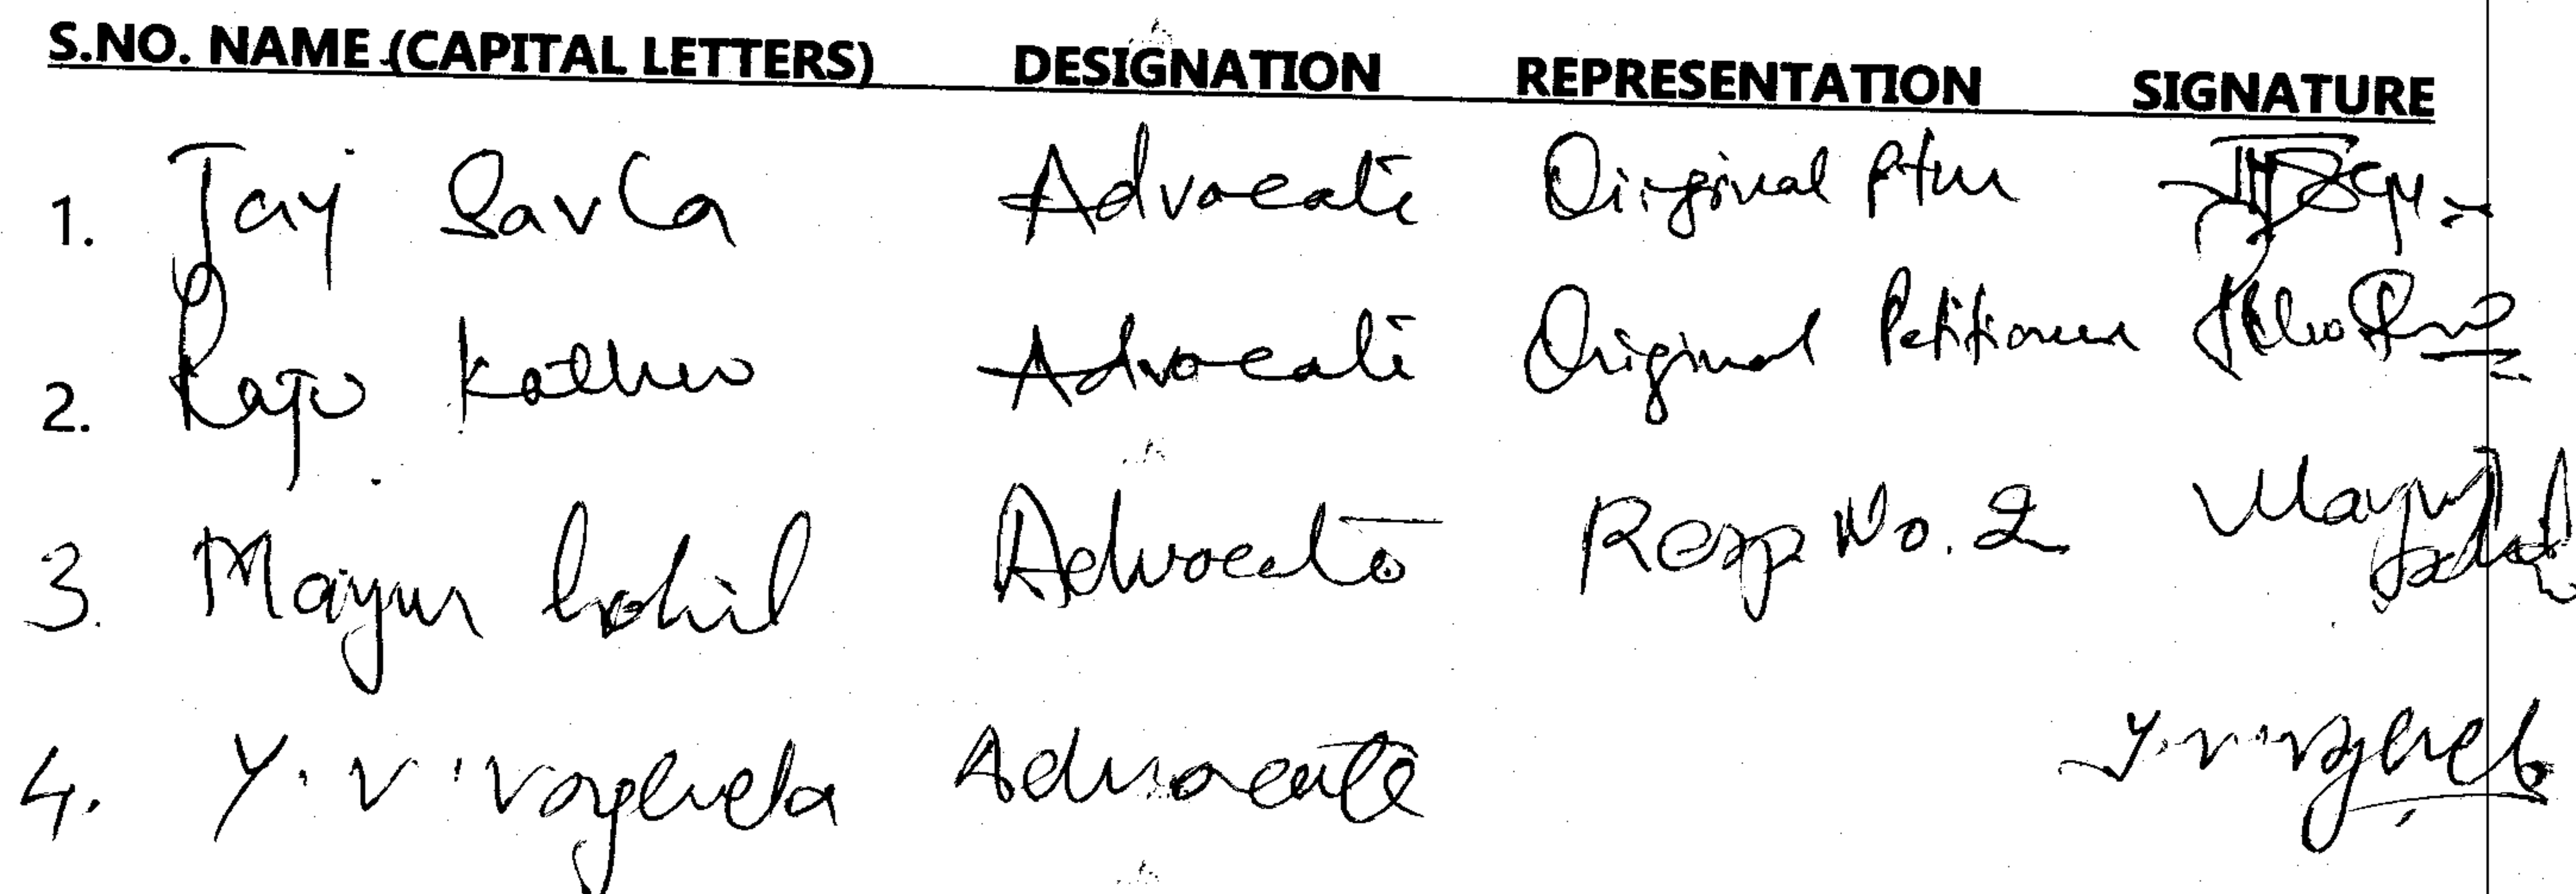 S.NO. NAME (CAPITAL LETTERS) DESIGNATION REPRESENTATION SIGNATURE
1. Jay Savla Advocate Oirginal Ptnr
2. Raju Kothari Advocate Original Petitioner
3. Mayur Gohil Advocate Resp No. 2 Mayur
4. Y. V. Vaghela Advocate Y. V. Vaghela